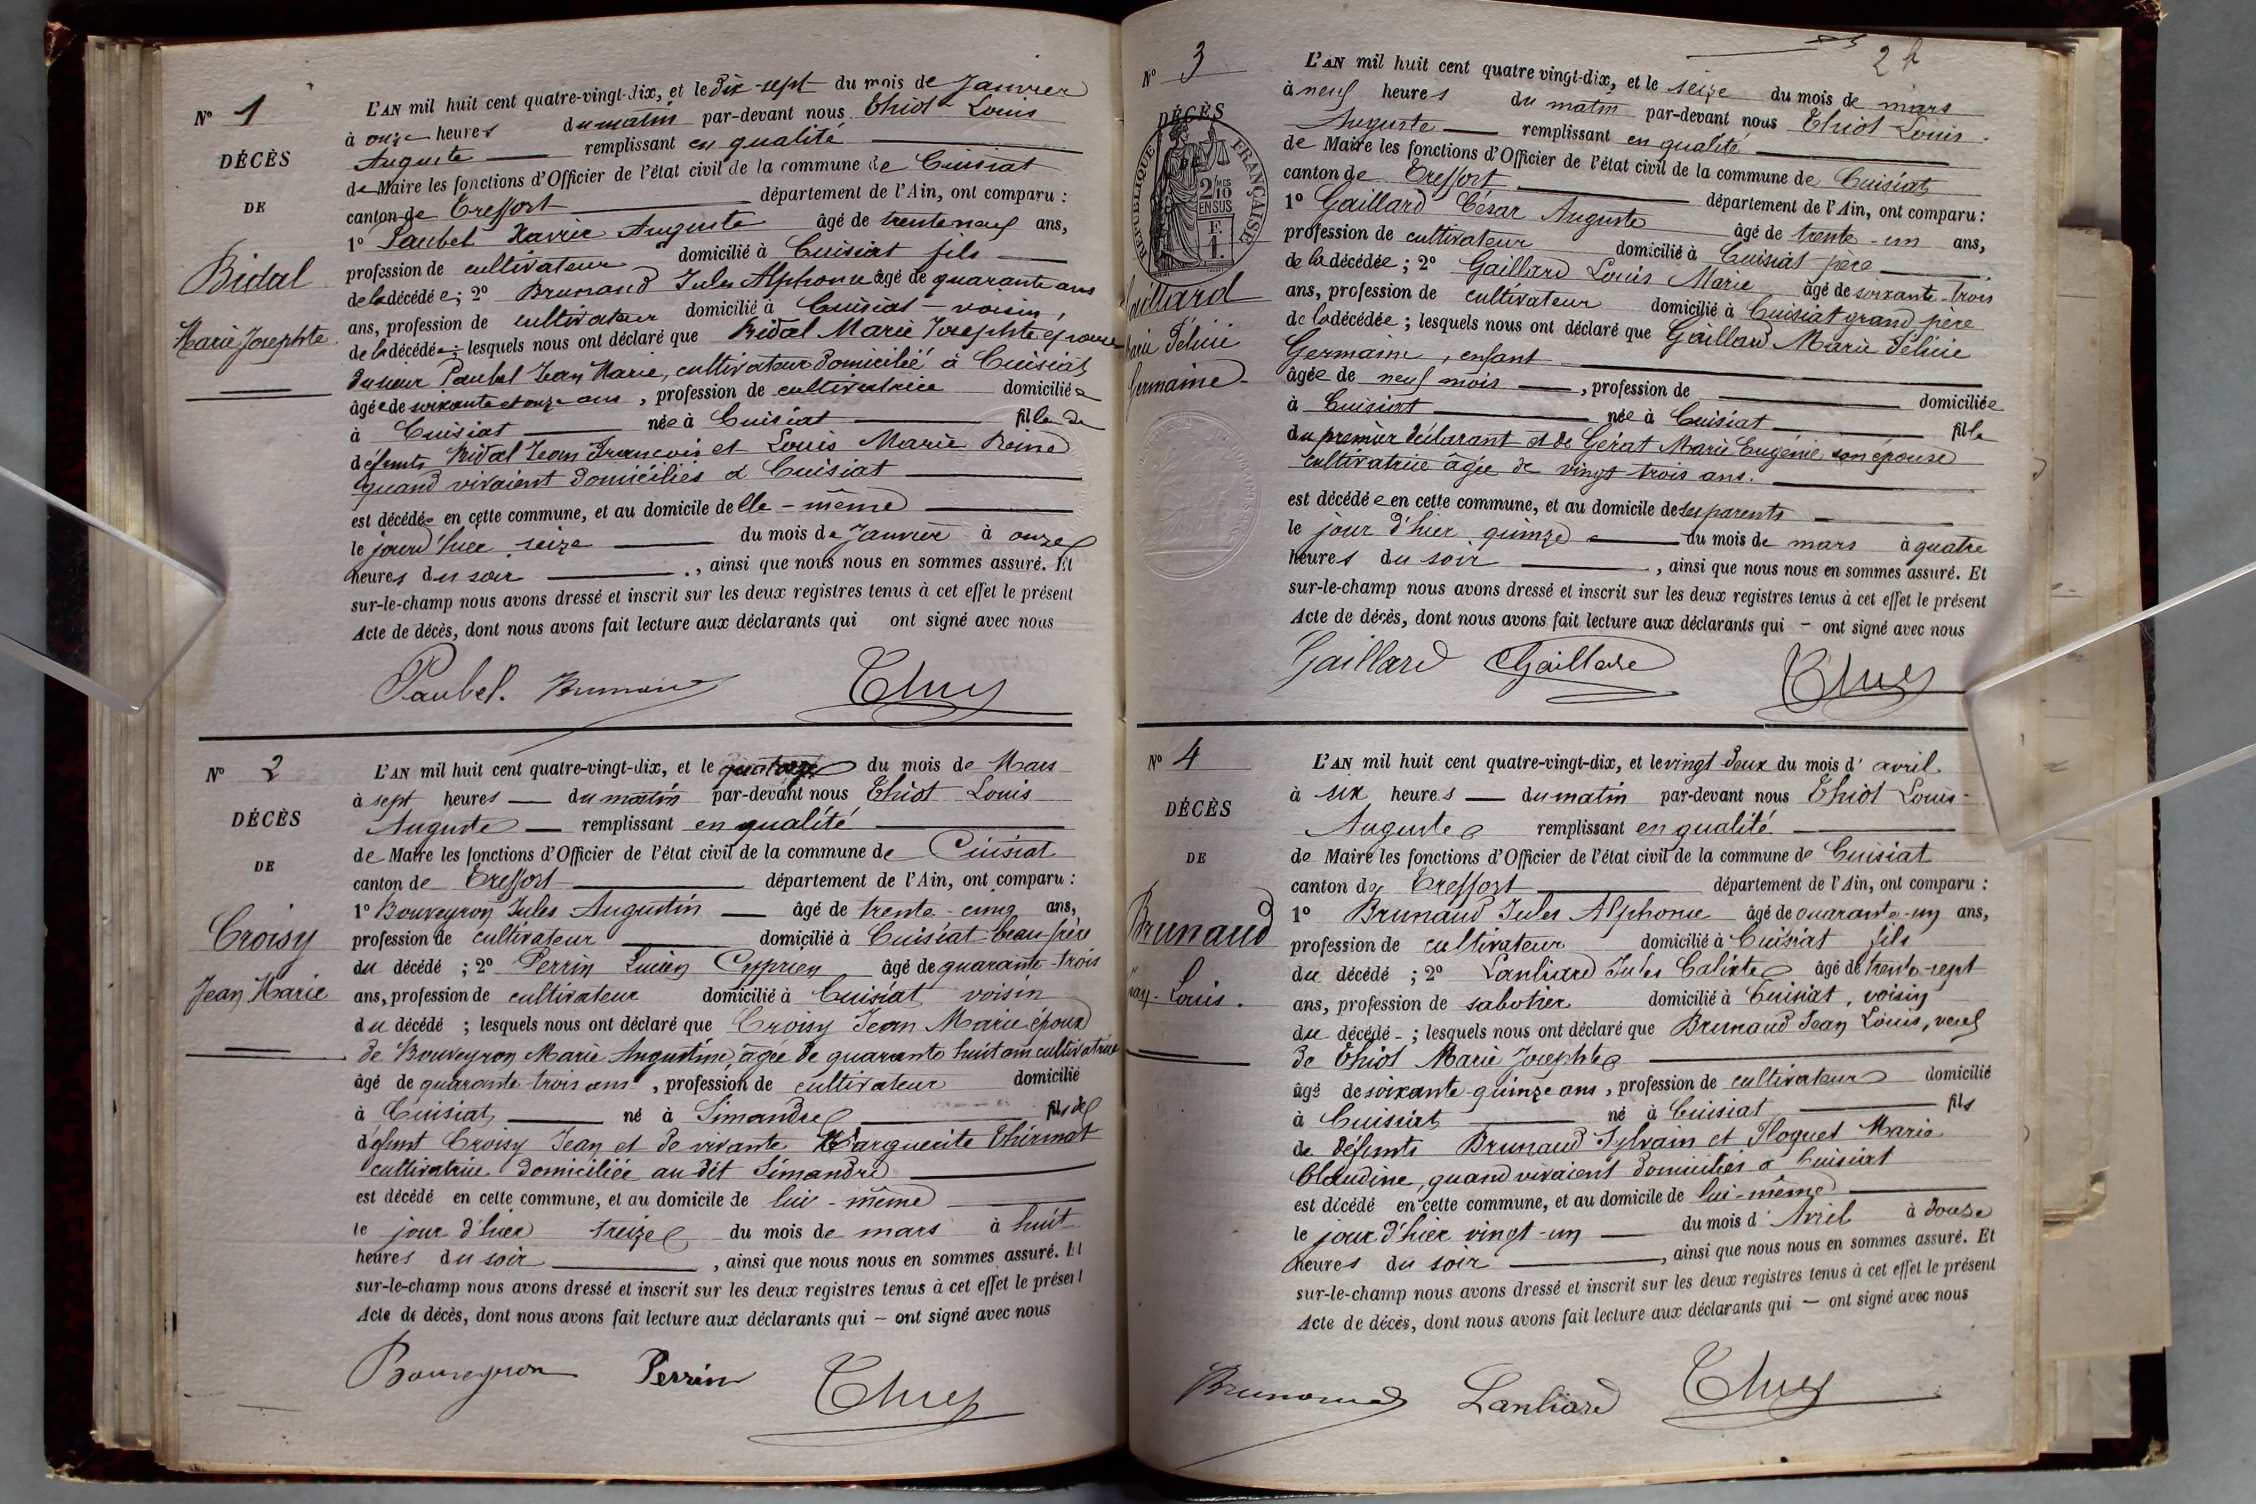 N° 1
DÉCÈS
DE
Bidal
Marie Josephte
L'AN mil huit cent quatre-vingt-dix, et le dix-sept du mois de Janvier
à onze heures du matin par-devant nous Thiot Louis
Auguste remplissant en qualité
de Maire les fonctions d'Officier de l'état civil de la commune de Cuisiat
canton de Treffort département de l'Ain, ont comparu :
1° Paubel Xavier Auguste âgé de trente neuf ans,
profession de cultivateur domicilié à Cuisiat fils
de la décédée ; 2° Brunaud Jules Alphonse âgé de quarante ans
ans, profession de cultivateur domicilié à Cuisiat - voisin,
de la décédée ; lesquels nous ont déclaré que Bidal Marie Josephte épouse
du sieur Paubel Jean Marie, cultivateur domicilié à Cuisiat
âgée de soixante et onze ans, profession de cultivatrice domiciliée
à Cuisiat née à Cuisiat fille de
défunts Bidal Jean Francois et Louis Marie Reine
quand vivaient domiciliés à Cuisiat
est décédée en cette commune, et au domicile delle-même
le jour d'hier seize du mois de Janvier à onze
heures du soir, ainsi que nous nous en sommes assuré. Et
sur-le-champ nous avons dressé et inscrit sur les deux registres tenus à cet effet le présent
Acte de décès, dont nous avons fait lecture aux déclarants qui ont signé avec nous
Paubel. Brunaud
N° 2
DÉCÈS
DE
Croisy
Jean Marie
L'AN mil huit cent quatre-vingt-dix, et le quatorze du mois de Mars
à sept heures du matin par-devant nous Thiot Louis
Auguste remplissant en qualité
de Maire les fonctions d'Officier de l'état civil de la commune de Cuisiat
canton de Treffort département de l'Ain, ont comparu :
1° Bouveyron Jules Augustin âgé de trente-cinq ans,
profession de cultivateur domicilié à Cuisiat beau-frère
du décédé ; 2° Perrin Lucien Cyprien âgé de quarante-trois
ans, profession de cultivateur domicilié à Cuisiat, voisin
du décédé ; lesquels nous ont déclaré que Croisy Jean Marie époux
de Bouveyron Marie Augustine, âgée de quarante huit ans cultivatrice
âgé de quarante-trois ans, profession de cultivateur domicilié
à Cuisiat né à Simandre fils de
défunt Croisy Jean et de vivante Marguerite Thirmat
cultivatrice domiciliée au dit Simandre
est décédé en cette commune, et au domicile de lui-même
le jour d'hier treize du mois de mars à huit
heures du soir, ainsi que nous nous en sommes assuré. Et
sur-le-champ nous avons dressé et inscrit sur les deux registres tenus à cet effet le présent
Acte de décès, dont nous avons fait lecture aux déclarants qui – ont signé avec nous
Bouveyron Perrin
2
N° 3
DÉCÈS
RÉPUBLIQUE FRANÇAISE
2/10
EN SUS
F.
1.
Gaillard
Marie Félicie
Germaine
L'AN mil huit cent quatre vingt-dix, et le seize du mois de mars
à neuf heures du matin par-devant nous Thiot Louis
Auguste remplissant en qualité
de Maire les fonctions d'Officier de l'état civil de la commune de Cuisiat
canton de Treffort département de l'Ain, ont comparu :
1° Gaillard César Auguste âgé de trente-un ans,
profession de cultivateur domicilié à Cuisiat père
de la décédée ; 2° Gaillard Louis Marie âgé de soixante-trois
ans, profession de cultivateur domicilié à Cuisiat grand père
de la décédée ; lesquels nous ont déclaré que Gaillard Marie Félicie
Germaine, enfant
âgée de neuf mois, profession de domiciliée
à Cuisiat née à Cuisiat fille
du premier déclarant et de Gérat Marie Eugénie son épouse
cultivatrice âgée de vingt trois ans.
est décédée en cette commune, et au domicile de ses parents
le jour d'hier quinze du mois de mars à quatre
heures du soir, ainsi que nous nous en sommes assuré. Et
sur-le-champ nous avons dressé et inscrit sur les deux registres tenus à cet effet le présent
Acte de décès, dont nous avons fait lecture aux déclarants qui – ont signé avec nous
Gaillard Gaillard
N° 4
DÉCÈS
DE
Brunaud
Jean-Louis.
L'AN mil huit cent quatre-vingt-dix, et le vingt deux du mois d'avril
à six heures du matin par-devant nous Thiot Louis-
Auguste remplissant en qualité
de Maire les fonctions d'Officier de l'état civil de la commune de Cuisiat
canton de Treffort département de l'Ain, ont comparu :
1° Brunaud Jules Alphonse âgé de quarante-un ans,
profession de cultivateur domicilié à Cuisiat fils
du décédé ; 2° Lanliard Jules Calixte âgé de trente-sept
ans, profession de sabotier domicilié à Cuisiat, voisin
du décédé ; lesquels nous ont déclaré que Brunaud Jean Louis, veuf
de Thiot Marie Josephte
âgé de soixante-quinze ans, profession de cultivateur domicilié
à Cuisiat né à Cuisiat fils
de défunts Brunaud Sylvain et Floquet Marie
Claudine, quand vivaient domiciliés à Cuisiat
est décédé en cette commune, et au domicile de lui-même
le jour d'hier vingt-un du mois d'Avril à douse
heures du soir, ainsi que nous nous en sommes assuré. Et
sur-le-champ nous avons dressé et inscrit sur les deux registres tenus à cet effet le présent
Acte de décès, dont nous avons fait lecture aux déclarants qui — ont signé avec nous
Brunaud Lanliard